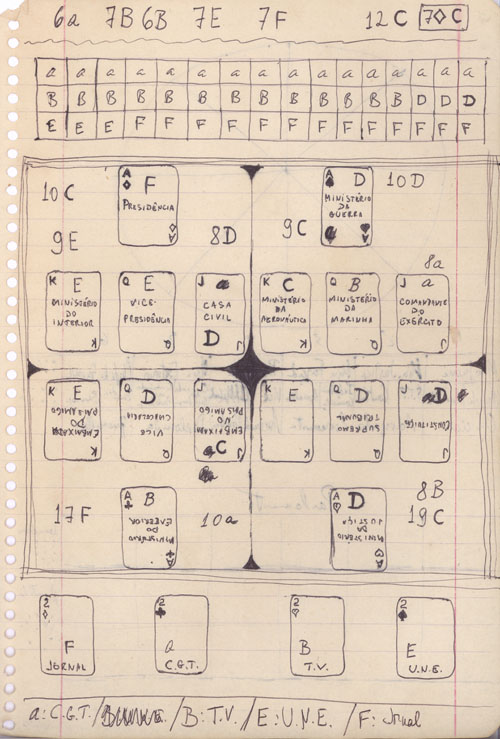 6a 7B 6B 7E 7F 12C 7♢C
a a a a a a a a a a a a a a a
B B B B B B B B B B B B D D D
E E E F F F F F F F F F F F F
10C A♦ F PRESIDÊNCIA A♢ 9E 8D
A♠ D MINISTÉRIO DA GUERRA A♠ 9C 10D
8a
K E MINISTÉRIO DO INTERIOR K
Q E VICE-PRESIDÊNCIA Q
J a CASA CIVIL D J
K C MINISTÉRIO DA AERONÁUTICA K
Q B MINISTÉRIO DA MARINHA Q
J a COMANDANTE DO EXÉRCITO J
K E EMBAIXADA DO PAÍS AMIGO
Q D VICE CHANCELER
J EMBAIXADA DO PAÍS AMIGO C
K E
Q D SUPREMO TRIBUNAL
J D CONSTITUIÇÃO
17F A♣ B MINISTÉRIO DO EXTERIOR A♣ 10a
A♡ D MINISTÉRIO DA JUSTIÇA A♡ 8B 19C
2♢ F JORNAL
2♣ a C.G.T.
2♡ B T.V.
2♠ E U.N.E.
a: C.G.T. / B: T.V. / E: U.N.E. / F: Jornal